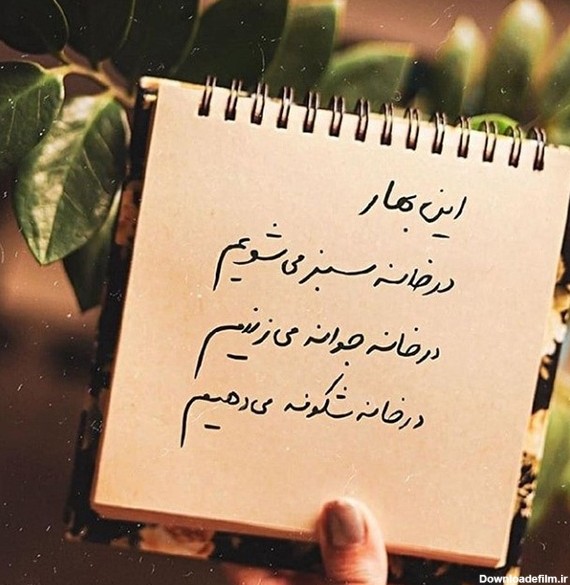 این بهار
در خانه سبز می‌شویم
در خانه جوانه می‌زنیم
در خانه شکوفه می‌دهیم
Downloadefilm.ir